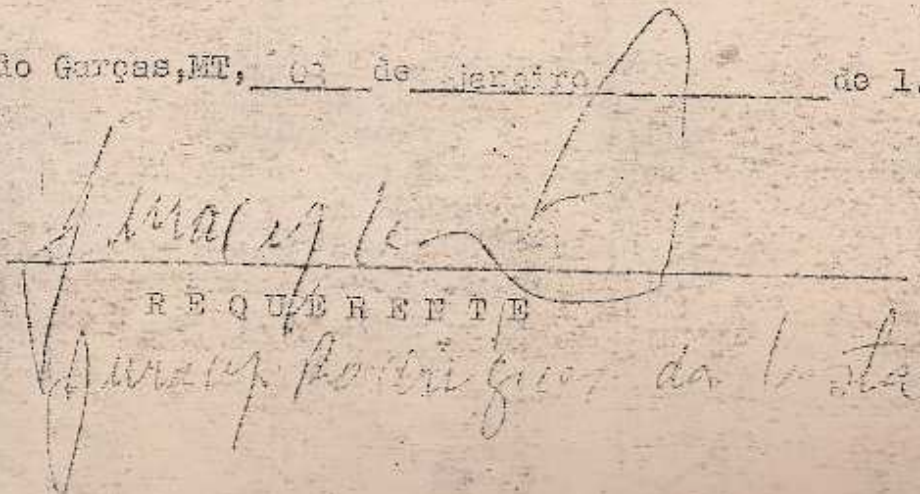 do Garças,MT, 03 de janeiro de 1.
REQUERENTE
Juracy Rodrigues da Costa